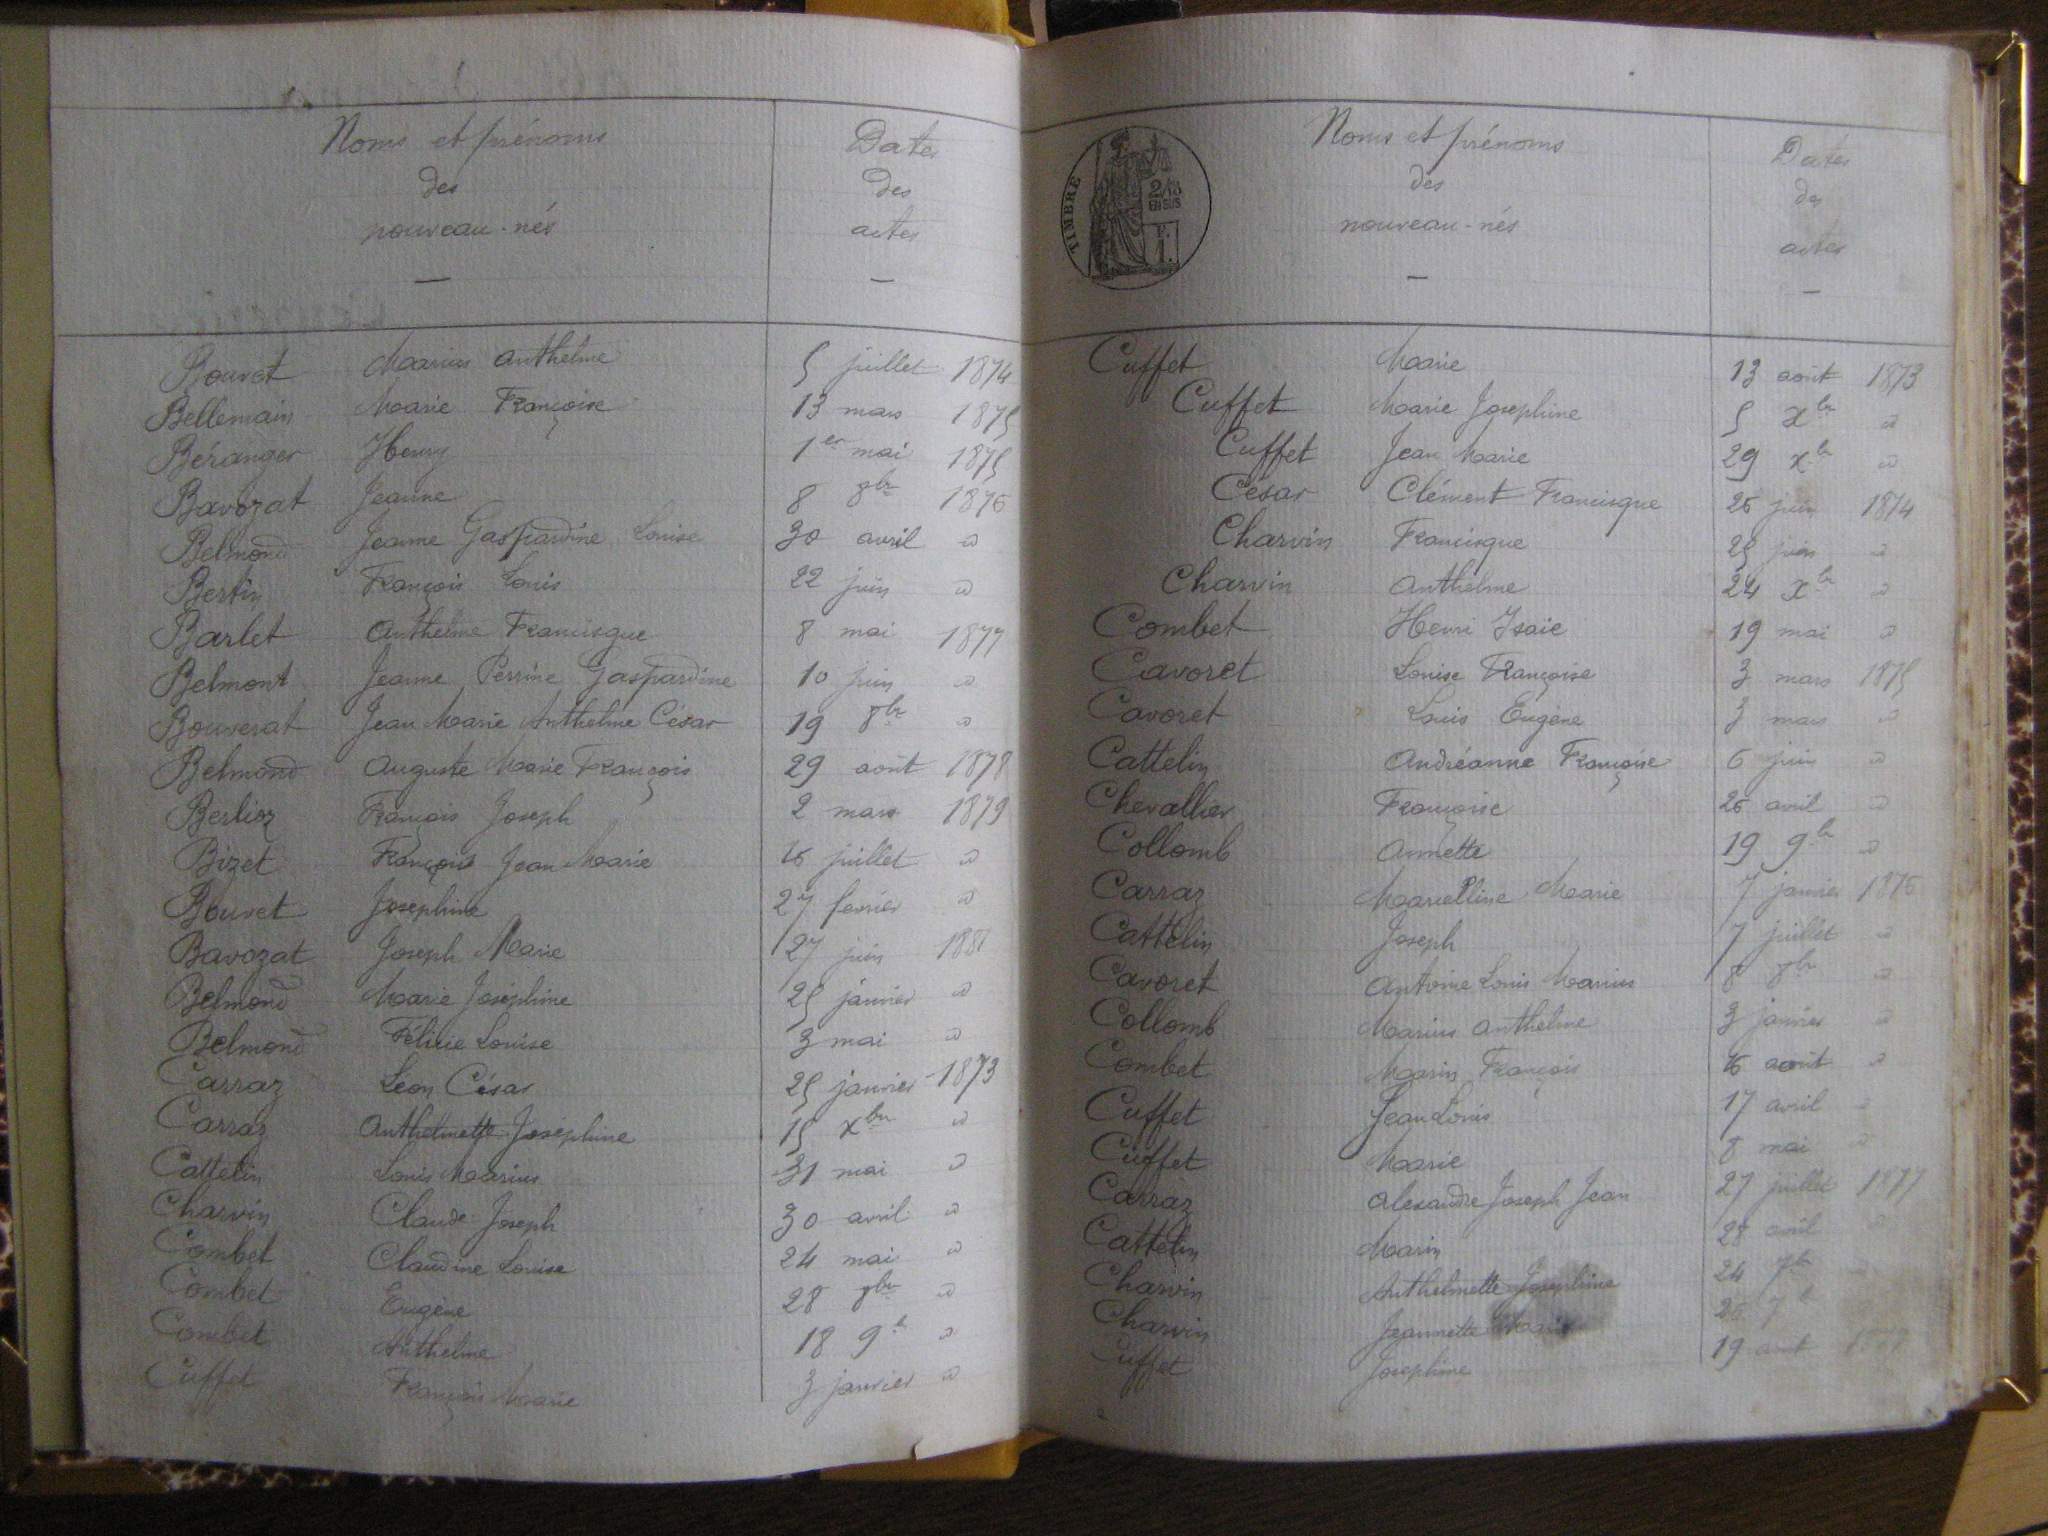 Noms et prénoms
des
nouveau-nés
—
Dates
des
actes
—
Bouvet Marius Anthelme 5 juillet 1874
Bellemain Marie Françoise 13 mars 1875
Béranger Henry 1er mai 1875
Bavozat Jeanne 8 8bre 1876
Belmond Jeanne Gaspardine Louise 30 avril "
Bertin François Louis 22 juin "
Barlet Anthelme Francisque 8 mai 1877
Belmont Jeanne Perrine Gaspardine 10 juin "
Bouverat Jean Marie Anthelme César 19 8bre "
Belmond Auguste Marie François 29 août 1878
Berlioz François Joseph 2 mars 1879
Bizet François Jean Marie 16 juillet "
Bouvet Josephine 27 fevrier "
Bavozat Joseph Marie 27 juin
Belmond Marie Joséphine 25 janvier "
Belmond Félicie Louise 3 mai "
Carraz Léon César 25 janvier 1873
Carraz Anthelmette Joséphine 15 xbre "
Cattelin Louis Marius 31 mai "
Charvin Claude Joseph 30 avril "
Combet Claudine Louise 24 mai "
Combet Eugène 28 8bre "
Combet Anthelme 18 9b "
Cuffet François Marie 3 janvier "
TIMBRE
2/10
EN SUS
Noms et prénoms
des
nouveau-nés
—
Dates
des
actes
—
Cuffet Marie 13 août 1873
Cuffet Marie Josephine 5 xbre "
Cuffet Jean Marie 29 xbre "
César Clément Francisque 26 juin 1874
Charvin Francisque 25 juin "
Charvin Anthelme 24 xbre "
Combet Henri Isaïe 19 mai "
Cavoret Louise Françoise 3 mars 1875
Cavoret Louis Eugène 3 mars "
Cattelin Andréanne Françoise 6 juin "
Chevallier Françoise 26 avril "
Collomb Annette 19 9bre "
Carraz Marcelline Marie 7 janvier 1876
Cattelin Joseph 7 juillet "
Cavoret Antoine Louis Marius 8 8bre "
Collomb Marius Anthelme 3 janvier "
Combet Marin François 16 août "
Cuffet Jean Louis 17 avril "
Cuffet Marie 8 mai "
Carraz Alexandre Joseph Jean 27 juillet 1877
Cattelin Marin 28 avril "
Charvin Anthelmette Josephine 24
Charvin Jeannette
Cuffet Josephine 19 août